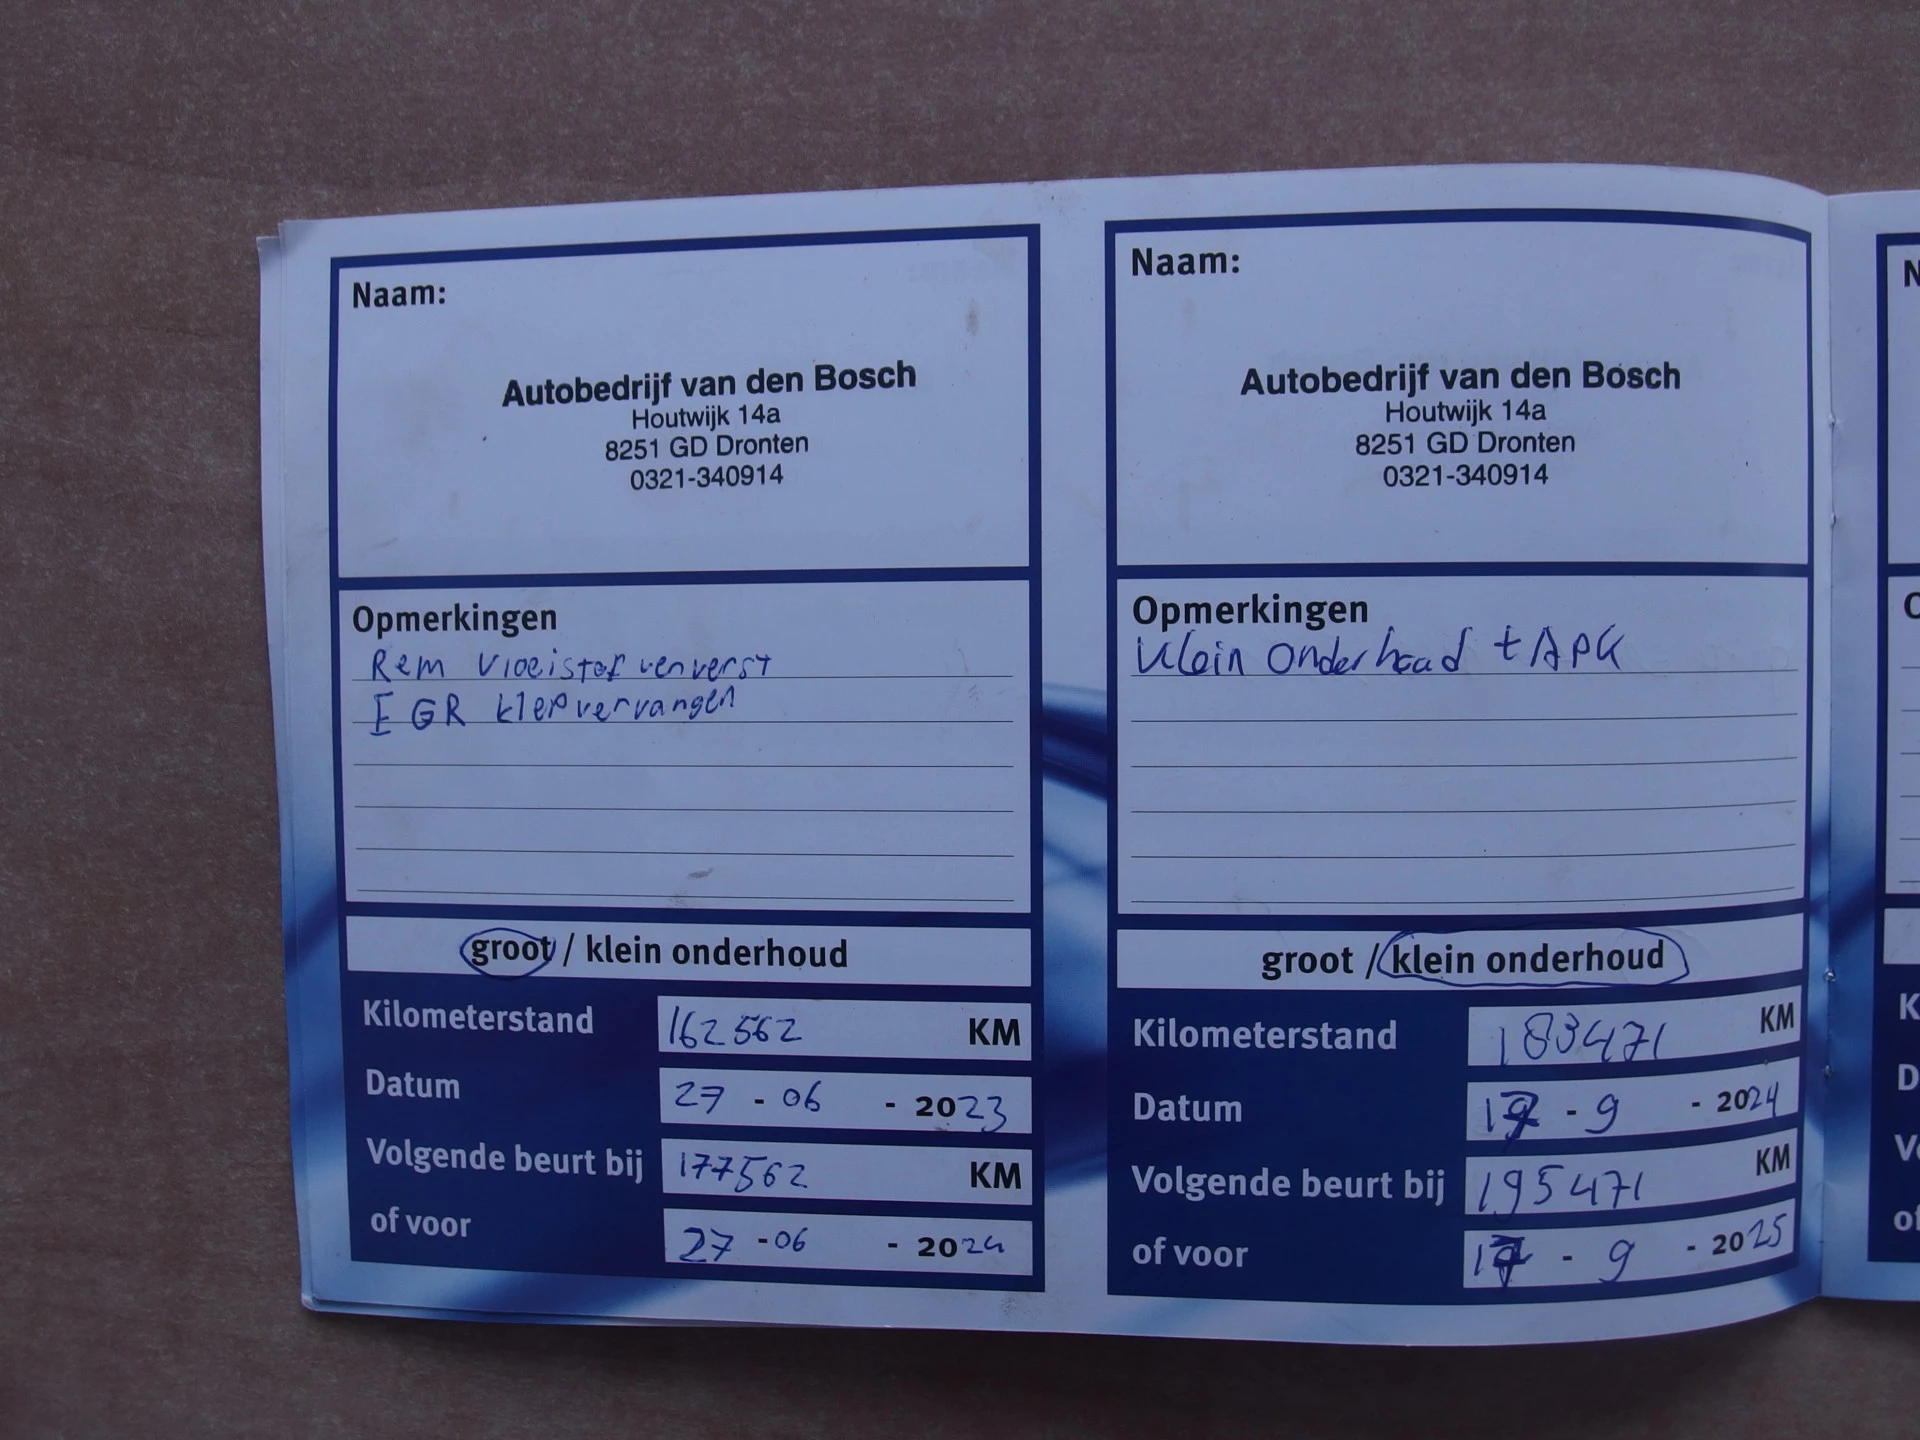 Naam:
Autobedrijf van den Bosch
Houtwijk 14a
8251 GD Dronten
0321-340914
Opmerkingen
Rem vloeistof ververst
EGR klep vervangen
groot / klein onderhoud
Kilometerstand 162562 KM
Datum 27 - 06 - 2023
Volgende beurt bij 177562 KM
of voor 27 - 06 - 2024
Naam:
Autobedrijf van den Bosch
Houtwijk 14a
8251 GD Dronten
0321-340914
Opmerkingen
Klein Onderhoud + APK
groot / klein onderhoud
Kilometerstand 183471 KM
Datum - 9 - 2024
Volgende beurt bij 195471 KM
of voor - 9 - 2025